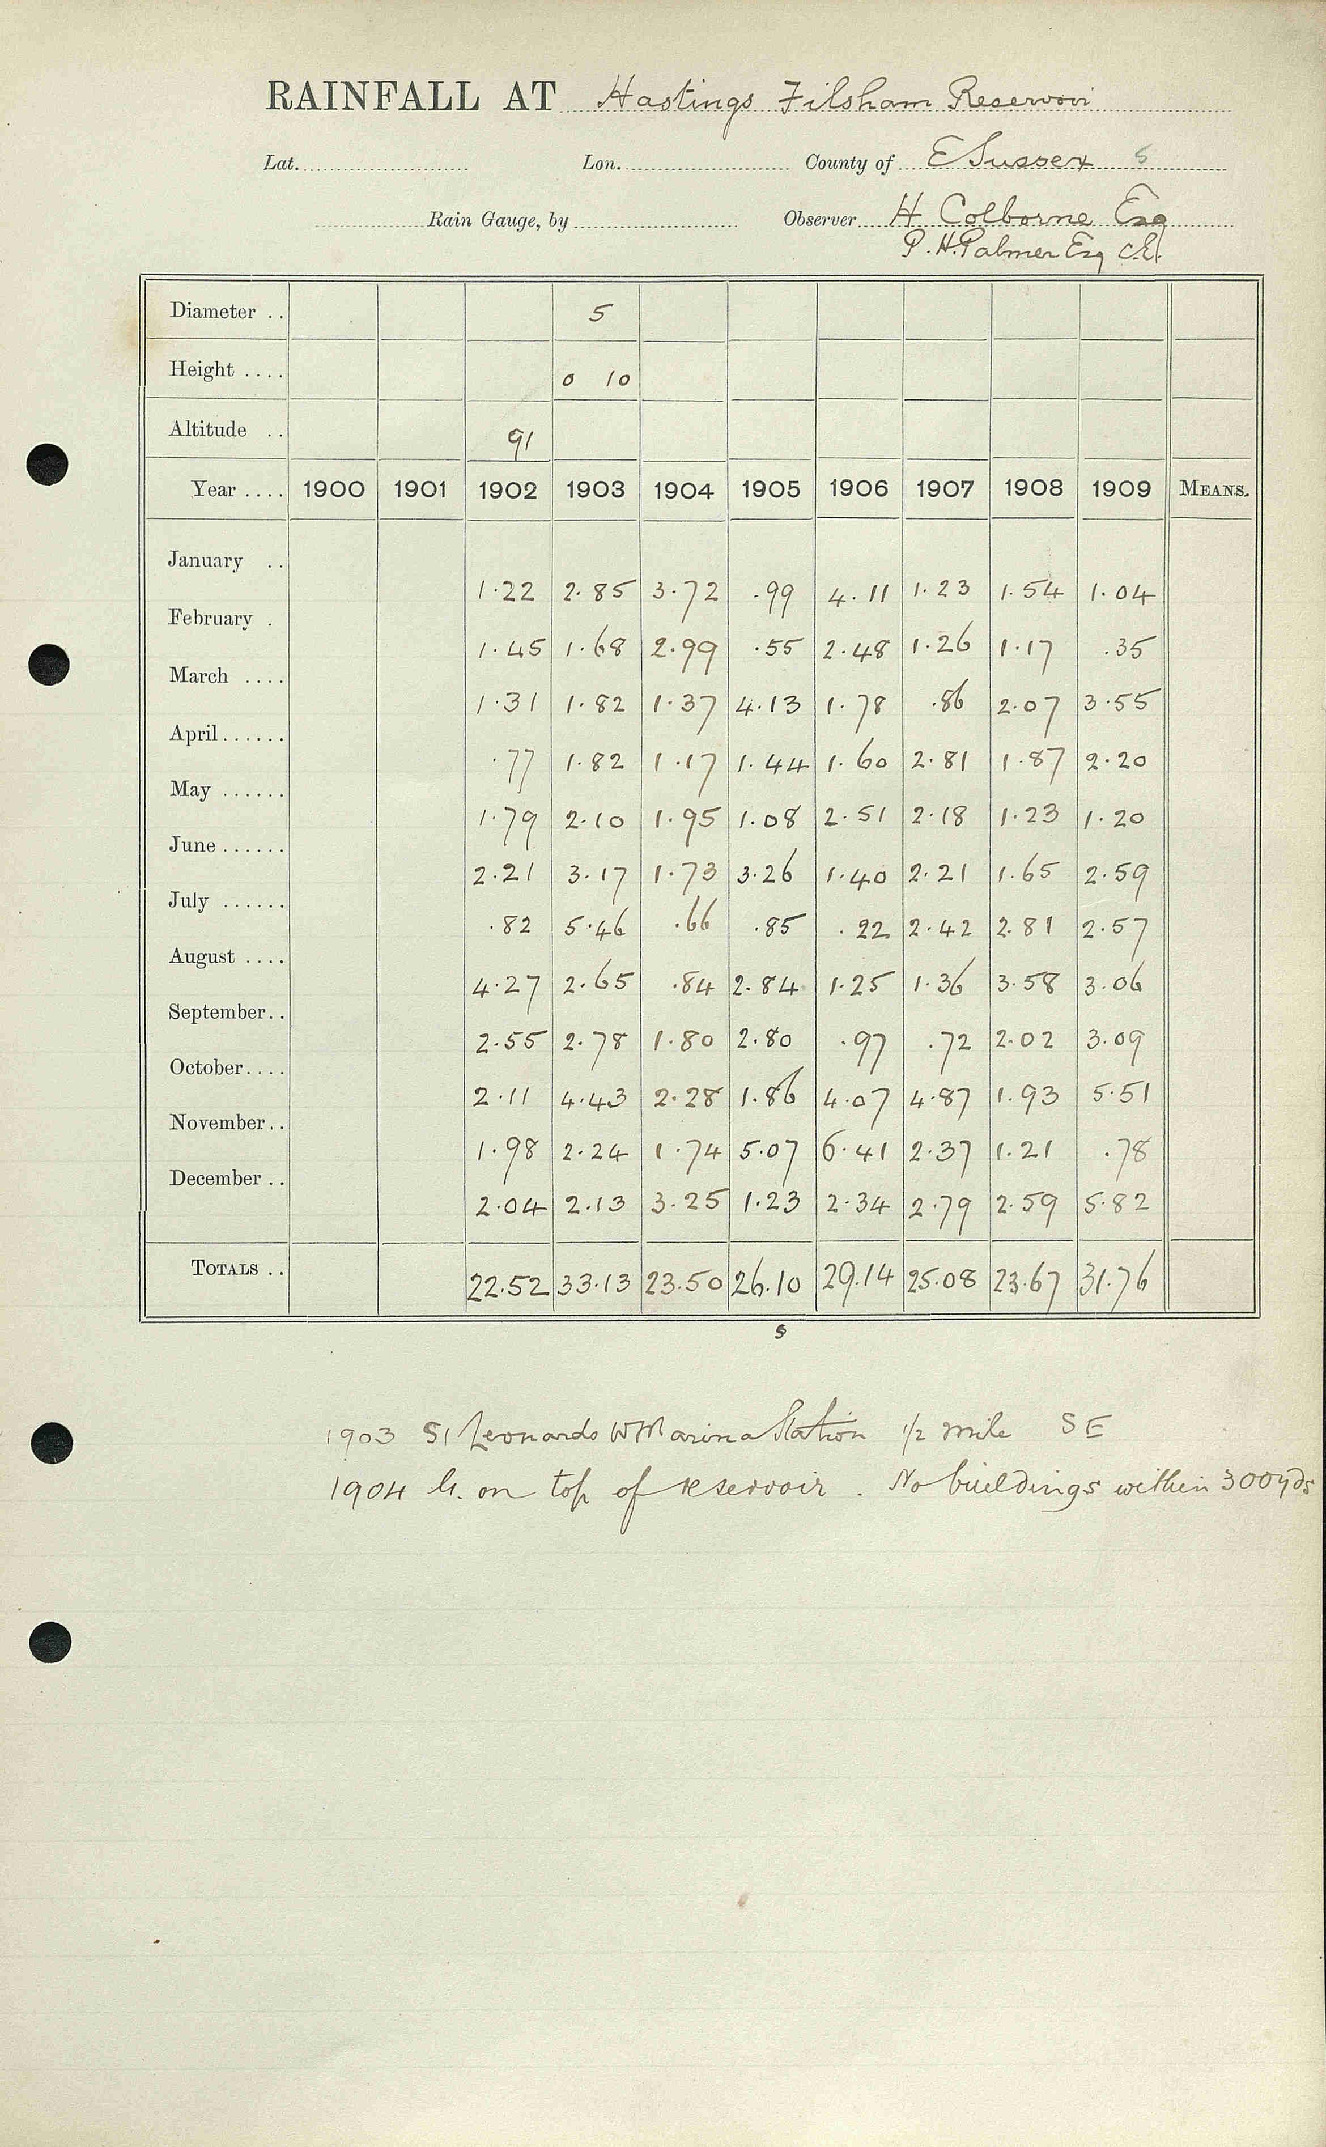 RAINFALL AT Hastings Filsham Reservoir
Lat. Lon. County of E Sussex 5
Rain Gauge, by Observer H Colborne Esq
P.H. Palmer Esq C.E.
Diameter .. 5
Height .... 0 10
Altitude .. 91
Year .... 1900 1901 1902 1903 1904 1905 1906 1907 1908 1909 MEANS.
January .. 1.22 2.85 3.72 .99 4.11 1.23 1.54 1.04
February . 1.45 1.68 2.99 .55 2.48 1.26 1.17 .35
March .... 1.31 1.82 1.37 4.13 1.78 .86 2.07 3.55
April...... .77 1.82 1.17 1.44 1.60 2.81 1.87 2.20
May ...... 1.79 2.10 1.95 1.08 2.51 2.18 1.23 1.20
June ...... 2.21 3.17 1.73 3.26 1.40 2.21 1.65 2.59
July ...... .82 5.46 .66 .85 .22 2.42 2.81 2.57
August .... 4.27 2.65 .84 2.84 1.25 1.36 3.58 3.06
September.. 2.55 2.78 1.80 2.80 .97 .72 2.02 3.09
October.... 2.11 4.43 2.28 1.86 4.07 4.87 1.93 5.51
November.. 1.98 2.24 1.74 5.07 6.41 2.37 1.21 .78
December .. 2.04 2.13 3.25 1.23 2.34 2.79 2.59 5.82
TOTALS .. 22.52 33.13 23.50 26.10 29.14 25.08 23.67 31.76
s
1903 St Leonards W Marina Station 1/2 mile SE
1904 G. on top of reservoir. No buildings within 300yds